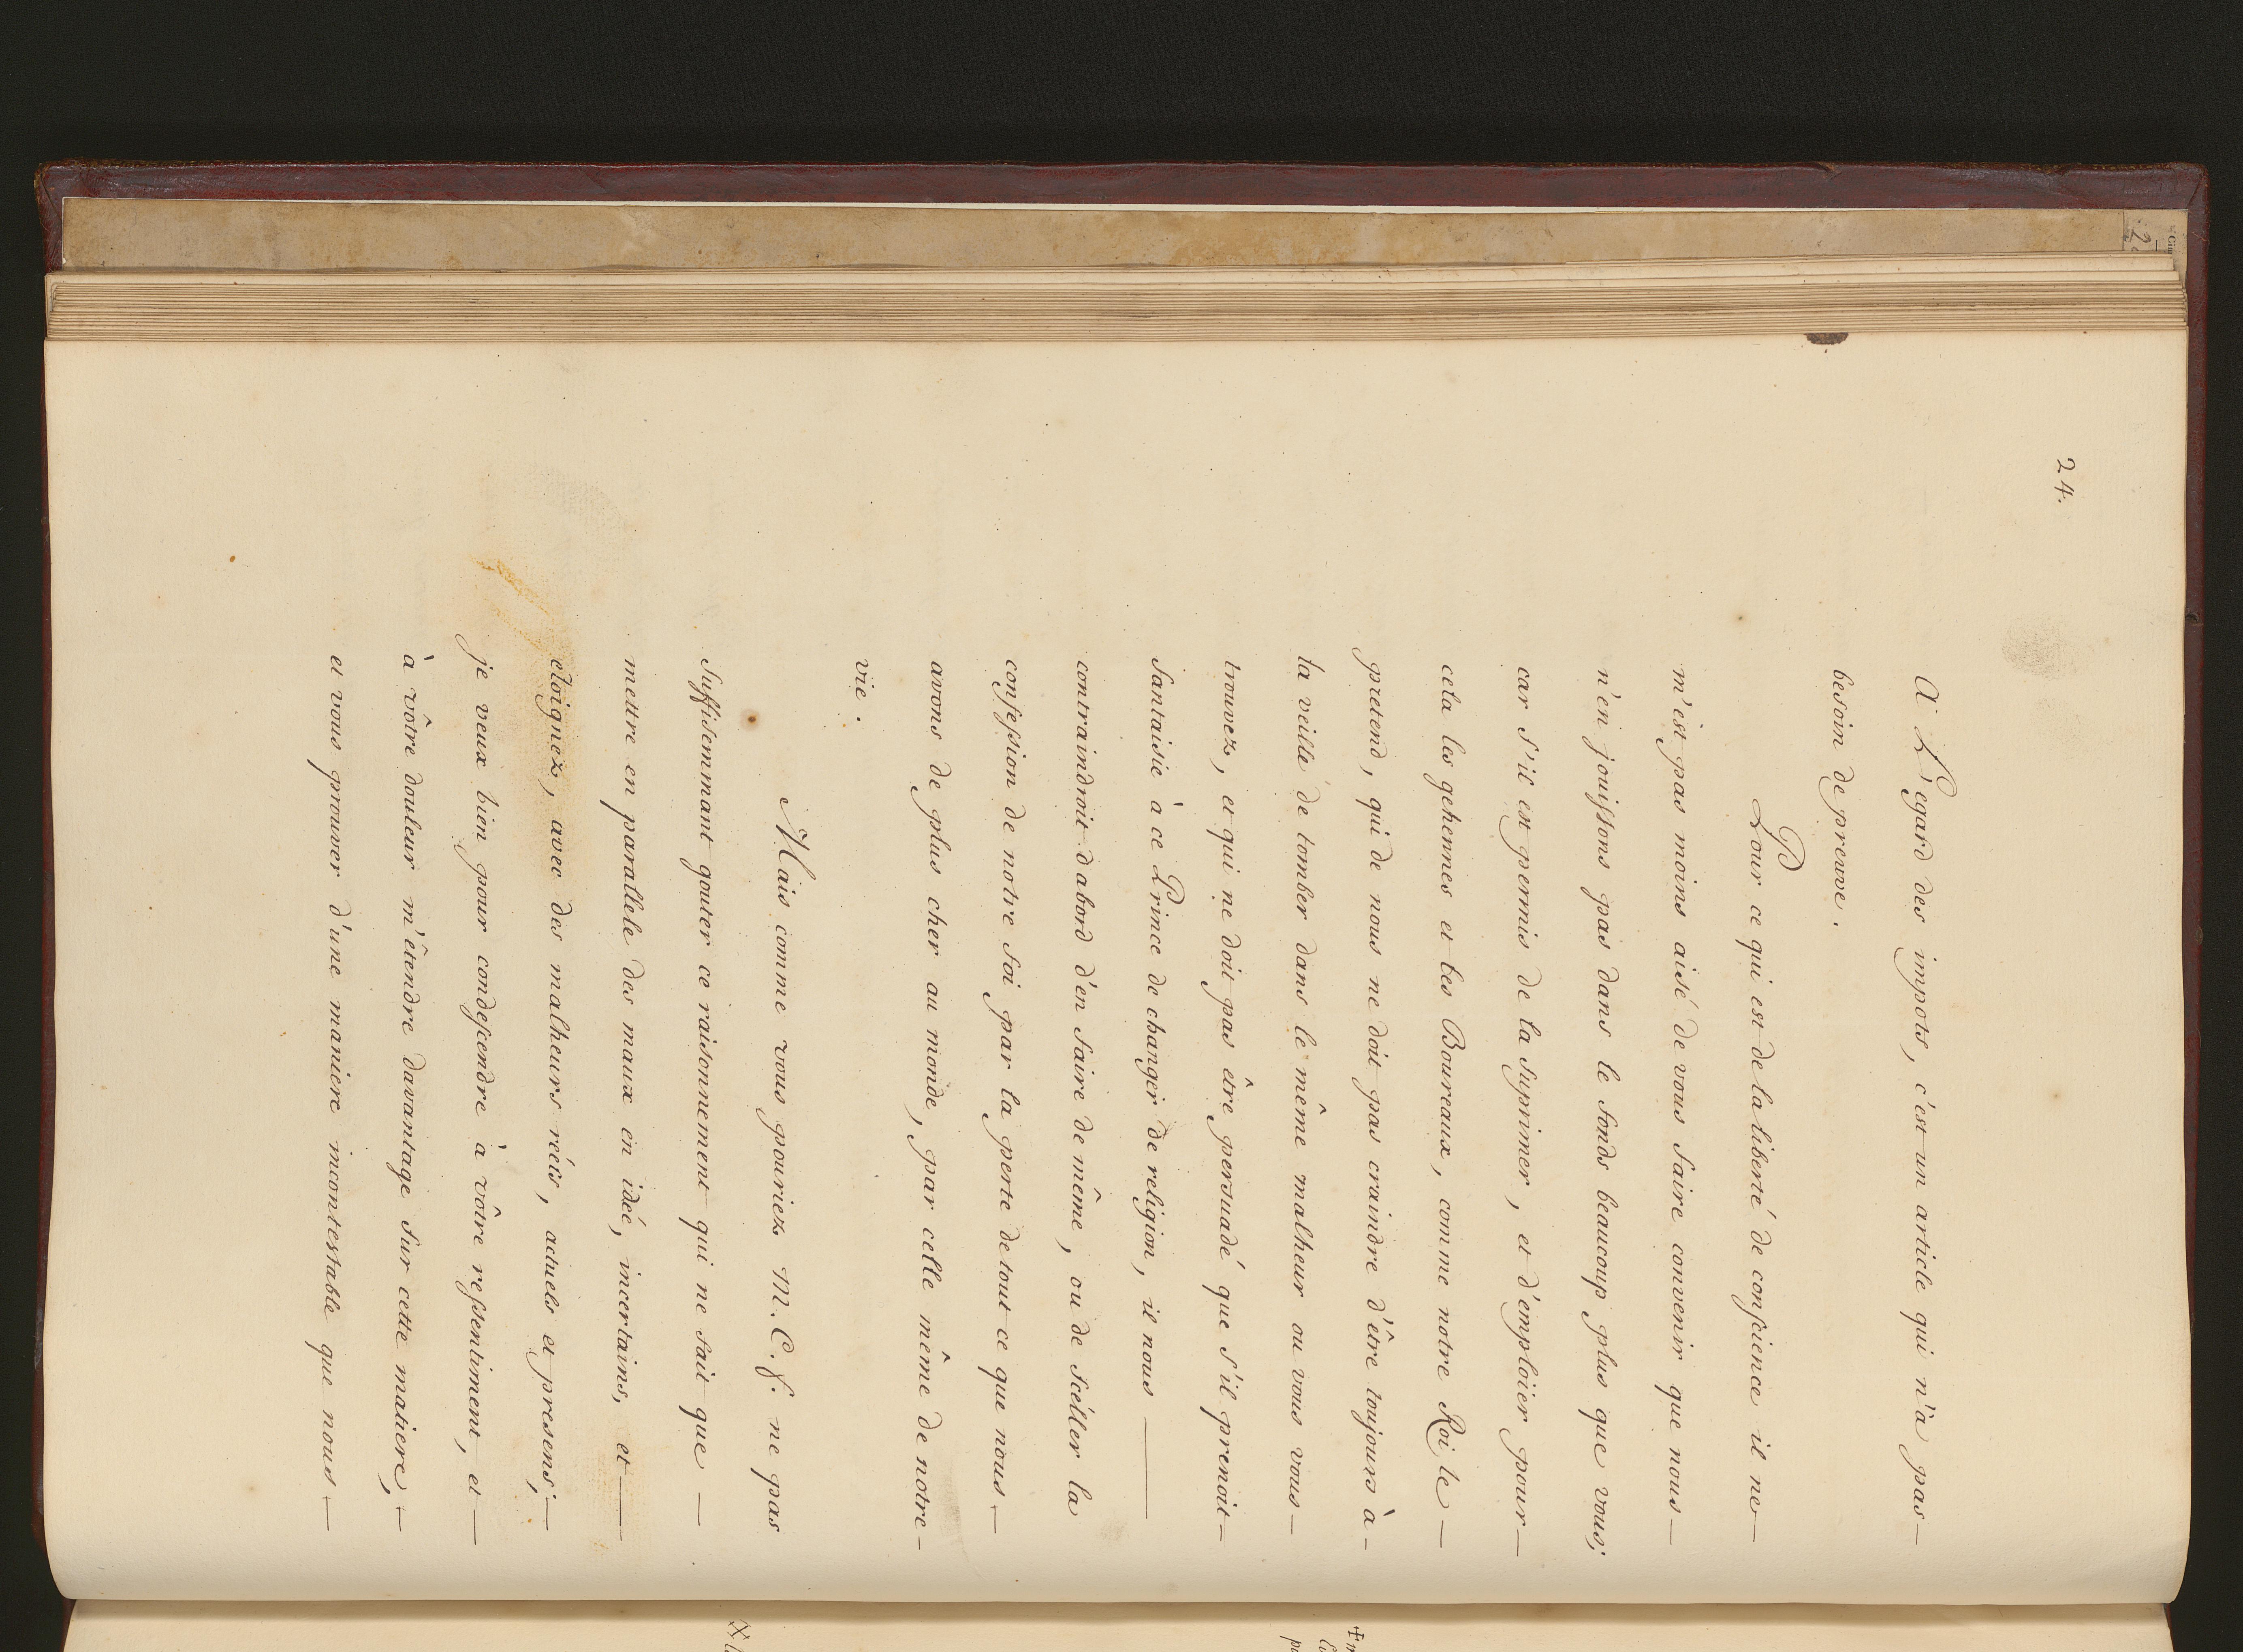 24.
A L'egard des impots, c'est un article qui n'a pas —
besoin de preuve.
Pour ce qui est de la liberté de consience il ne —
m'est pas moins aisé de vous faire convenir que nous —
n'en jouissons pas dans le fonds beaucoup plus que vous;
car s'il est permis de la suprimer, et d'emploïer pour —
cela les gehennes et les Boureaux, comme notre Roi le —
pretend, qui de nous ne doit pas craindre d'être toujours à -
la veille de tomber dans le même malheur ou vous vous —
trouvez, et qui ne doit pas être persuadé que s'il prenoit —
fantaisie à ce Prince de changer de religion, il nous —
contraindroit d'abord d'en faire de même, ou de séller la
confession de notre foi par la perte de tout ce que nous —
avons de plus cher au monde, par celle même de notre —
vie.
Mais comme vous pouriez M. C. f. ne pas
suffisemmant gouter ce raisonnement qui ne fait que —
mettre en parallele des maux en ideé, incertains, et —
eloignez, avec des malheurs réels, actuels et presens; —
je veux bien pour condescendre à vôtre ressentiment, et —
à vôtre douleur m'êtendre davantage sur cette matiere, —
et vous prouver d'une maniere incontestable que nous —